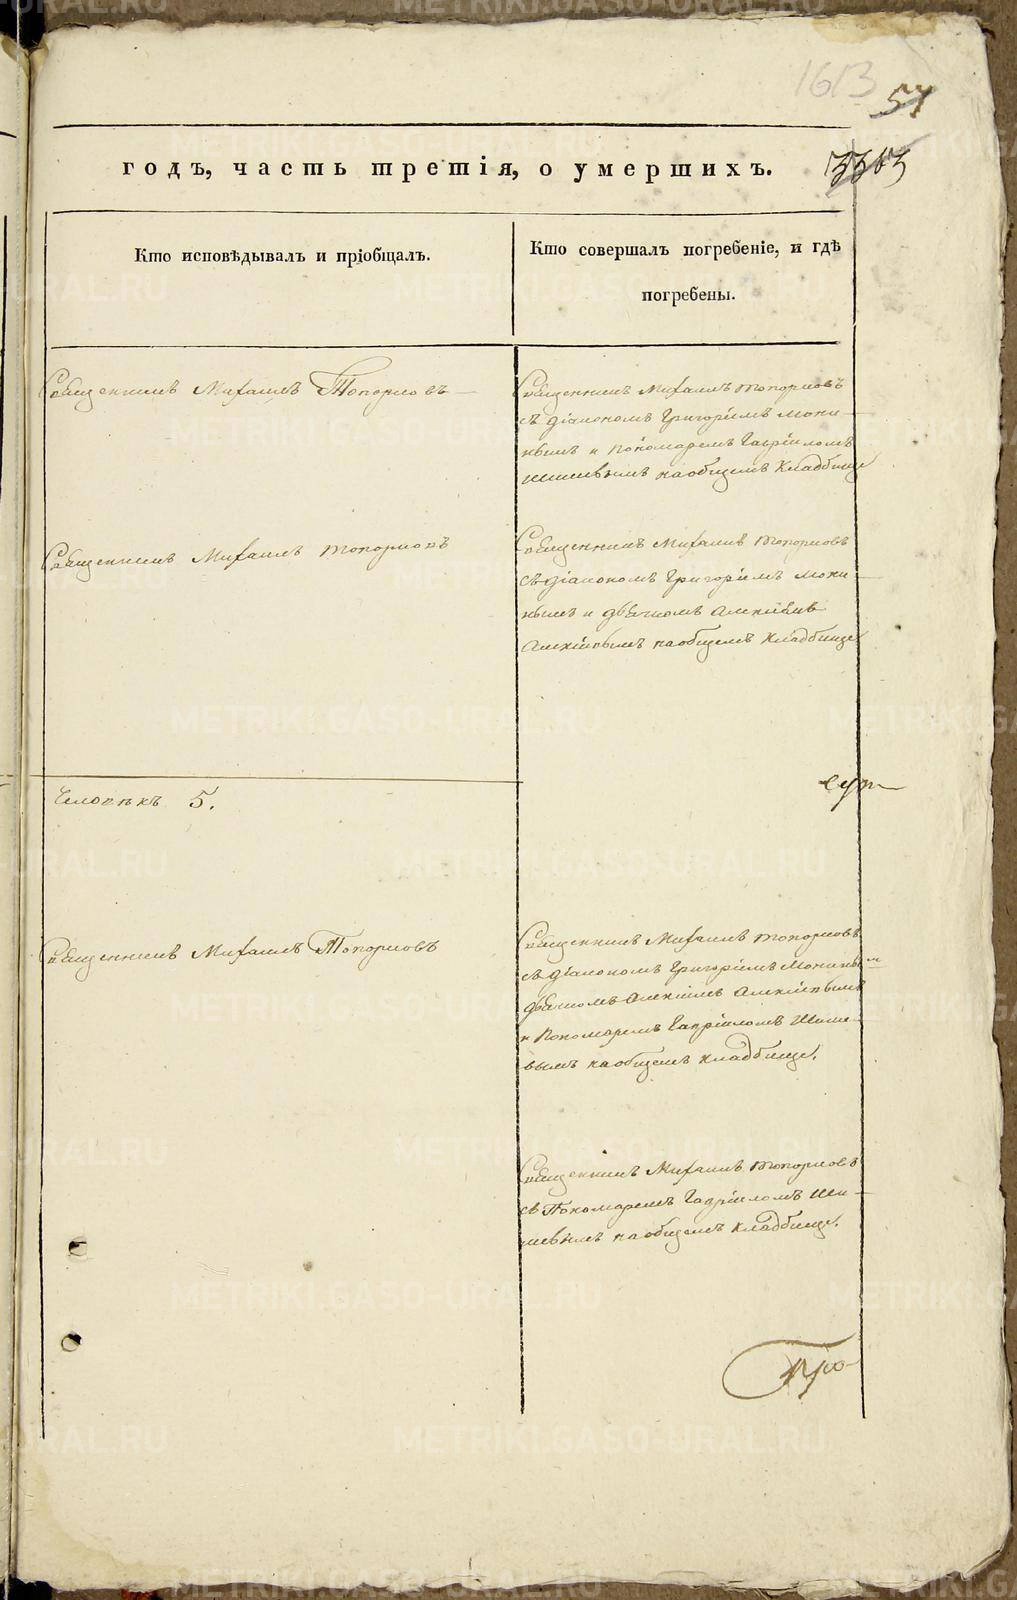 1613
57
3363
годъ, часть третія, о умершихъ.
Кто исповѣдывалъ и пріобщалъ.
Кто совершалъ погребеніе, и гдѣ
погребены.
Священникъ Михаилъ Топорковъ
Священникъ Михаилъ Топорковъ
съ діакономъ Григоріемъ Мони-
нымъ и Пономаремъ Гавріиломъ
Шишевымъ на общемъ Кладбище
Священникъ Михаилъ Топорковъ
Священникъ Михаилъ Топорковъ
съ діакономъ Григоріемъ Мони-
нымъ и дьячкомъ Алексіемъ
Алексіевымъ на общемъ Кладбище
Человѣкъ 5.
Священникъ Михаилъ Топорковъ
Священникъ Михаилъ Топорковъ
съ діакономъ Григоріемъ Мониным
дьячкомъ Алексіемъ Алексіевымъ
и Пономаремъ Гавріиломъ Шише-
вымъ на общемъ кладбище.
Священникъ Михаилъ Топорковъ
съ Пономаремъ Гавріиломъ Ши-
шевымъ на общемъ кладбище.
METRIKI.GASO-URAL.RU